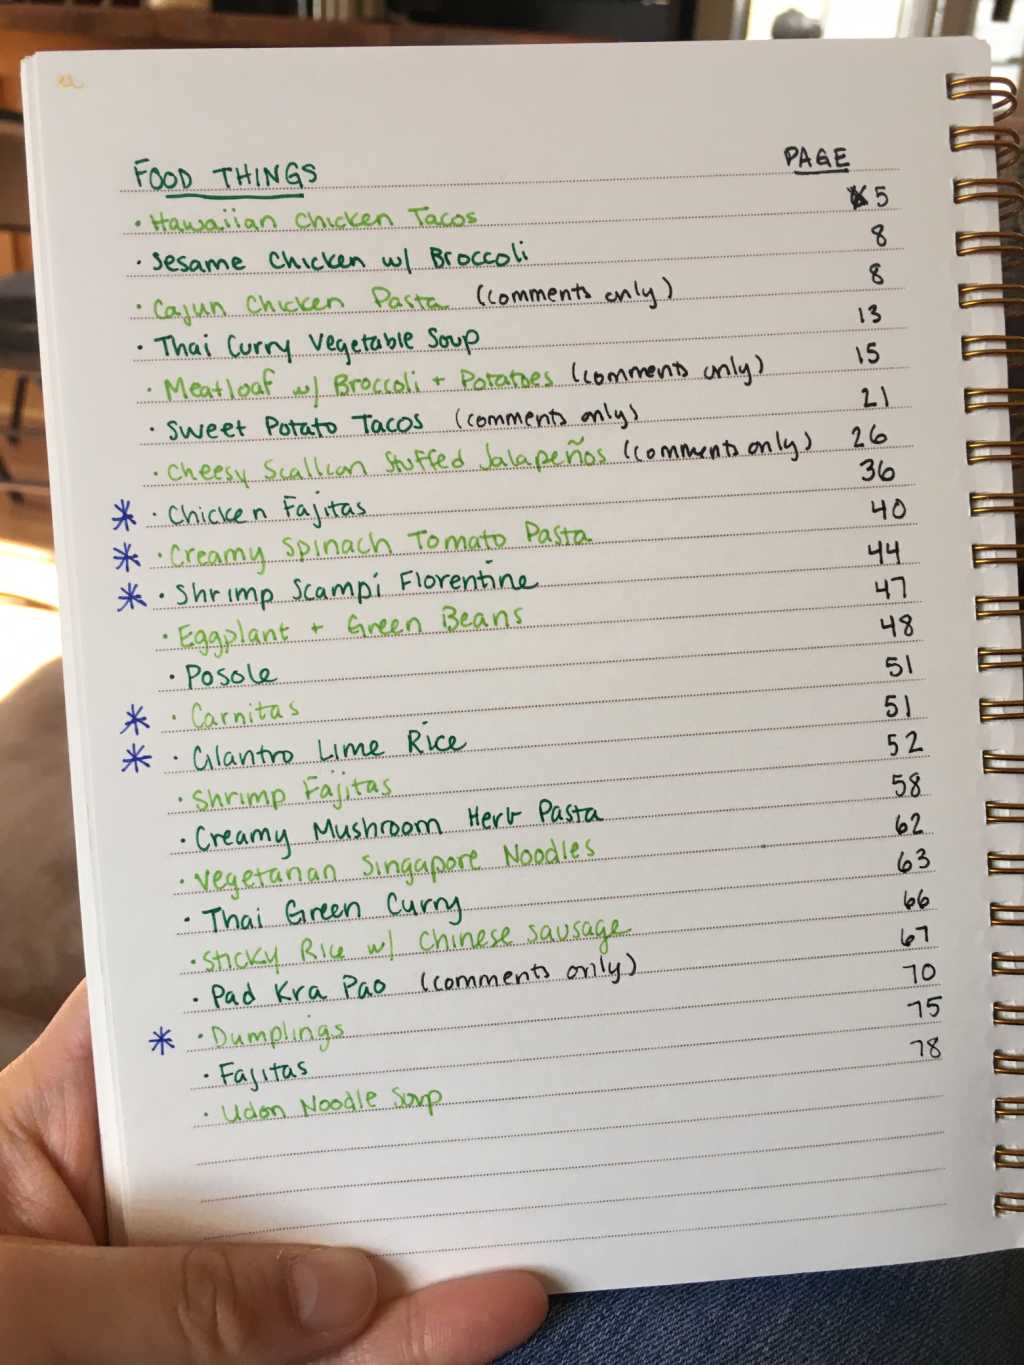 FOOD THINGS PAGE
· Hawaiian Chicken Tacos 5
· Sesame Chicken w/ Broccoli 8
· Cajun Chicken Pasta (comments only) 8
· Thai Curry Vegetable Soup 13
· Meatloaf w/ Broccoli + Potatoes (comments only) 15
· Sweet Potato Tacos (comments only) 21
· Cheesy Scallion Stuffed Jalapeños (comments only) 26
* · Chicken Fajitas 36
* · Creamy Spinach Tomato Pasta 40
* · Shrimp Scampi Florentine 44
· Eggplant + Green Beans 47
· Posole 48
* · Carnitas 51
* · Cilantro Lime Rice 51
· Shrimp Fajitas 52
· Creamy Mushroom Herb Pasta 58
· Vegetarian Singapore Noodles 62
· Thai Green Curry 63
· Sticky Rice w/ Chinese sausage 66
· Pad Kra Pao (comments only) 67
* · Dumplings 70
· Fajitas 75
· Udon Noodle Soup 78